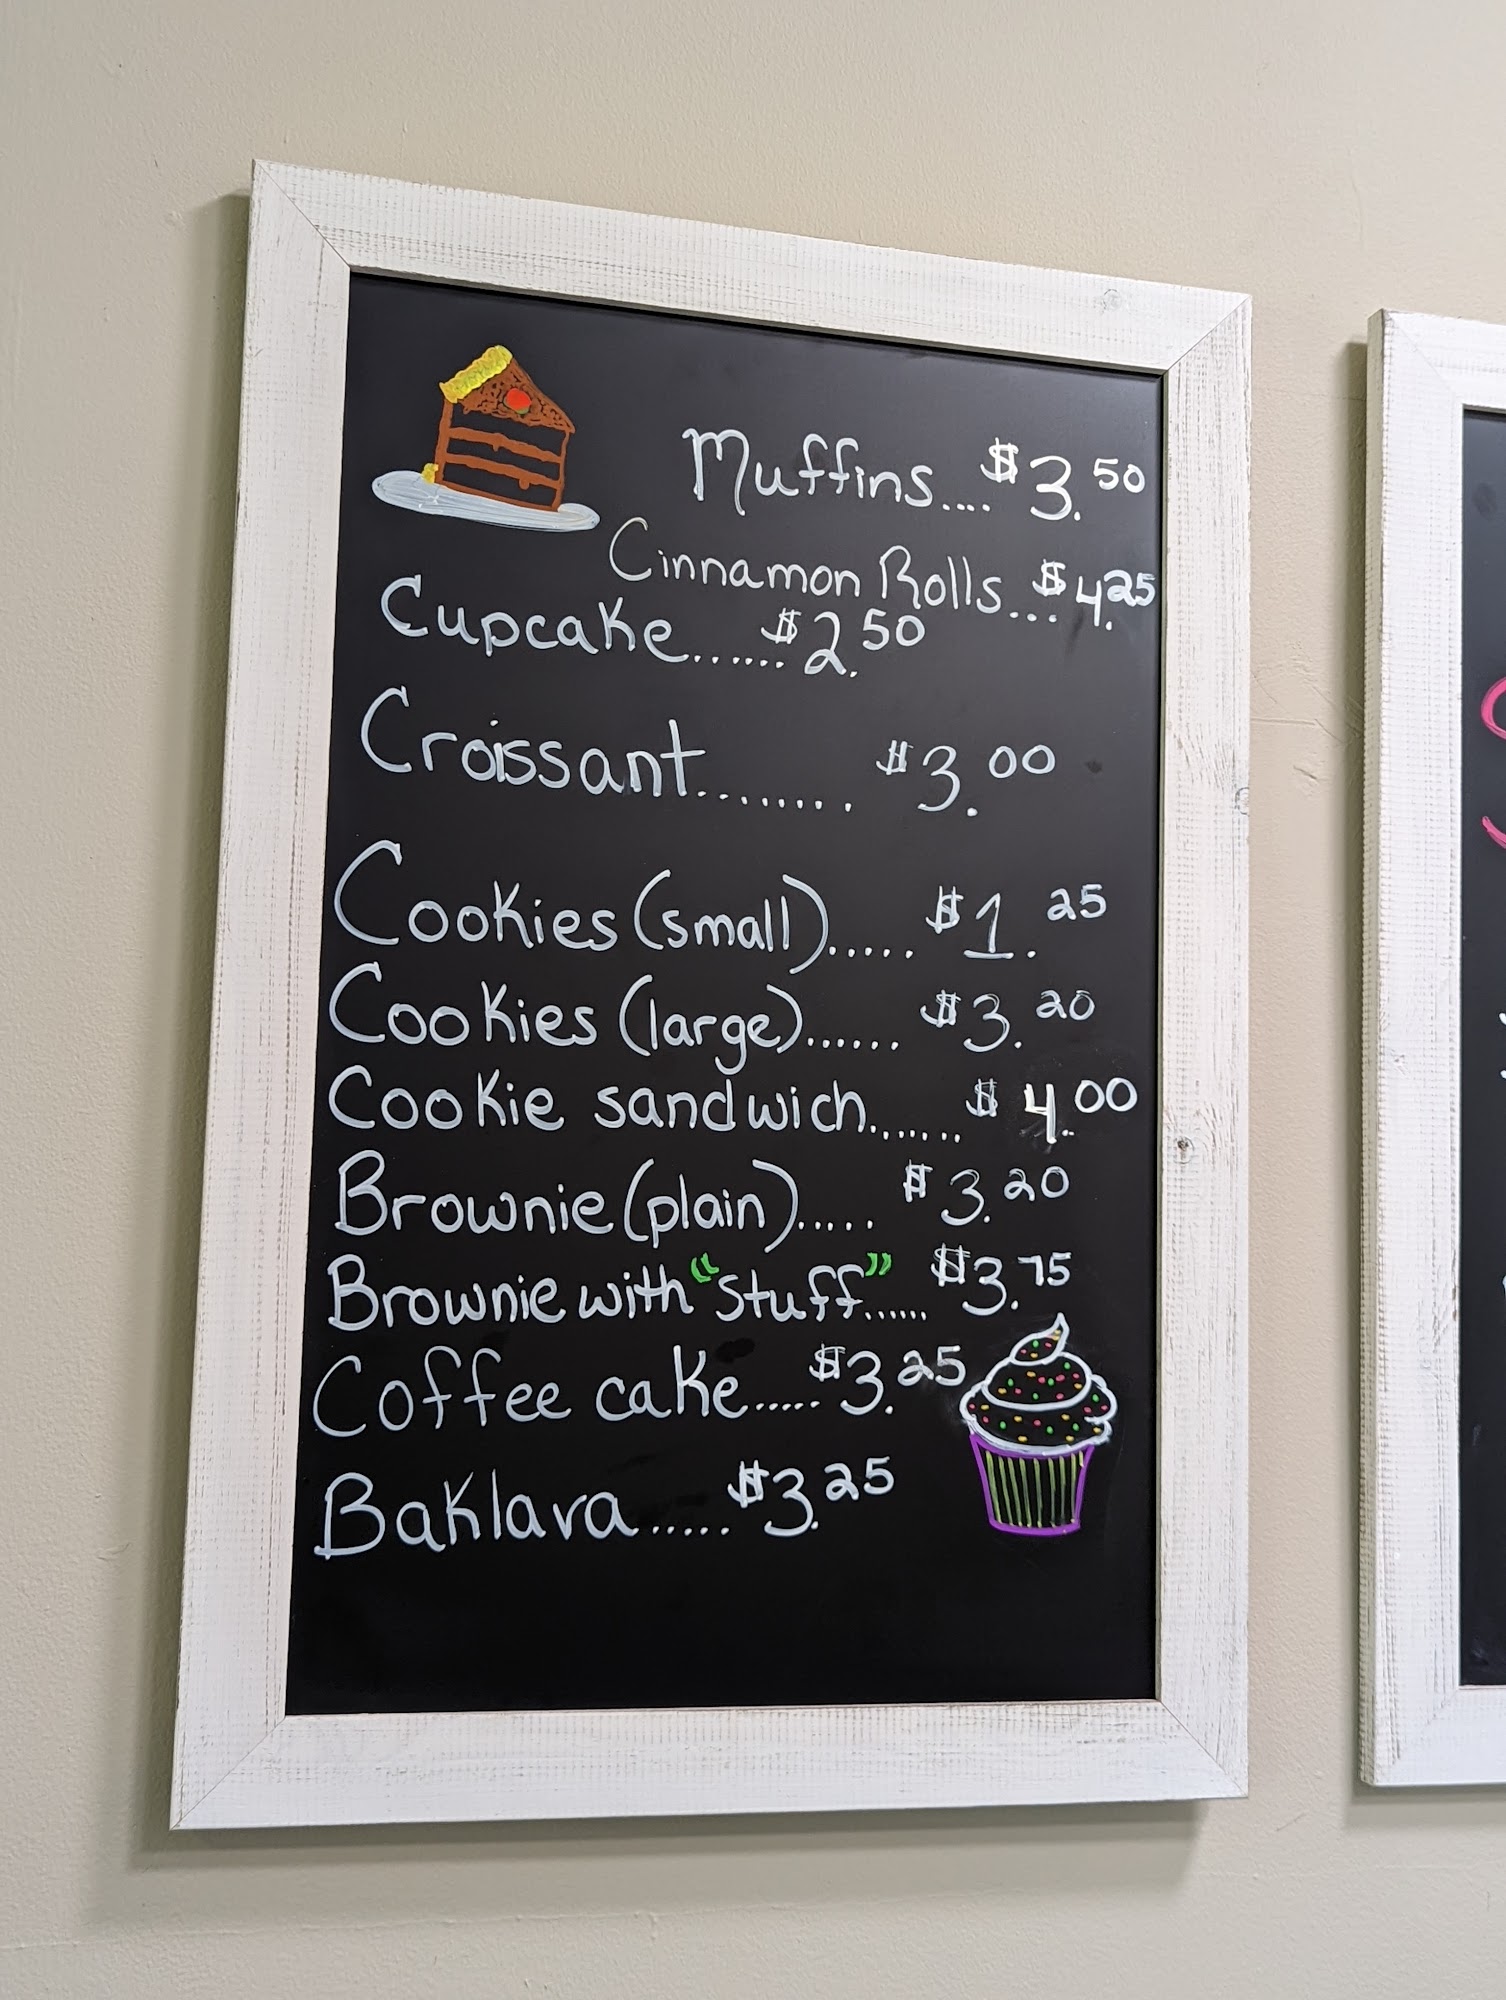 Muffins.... $3.50
Cinnamon Rolls... $4.25
Cupcake...... $2.50
Croissant........ $3.00
Cookies (small)..... $1.25
Cookies (large)...... $3.20
Cookie sandwich...... $4.00
Brownie (plain)..... $3.20
Brownie with "stuff"...... $3.75
Coffee cake..... $3.25
Baklava..... $3.25